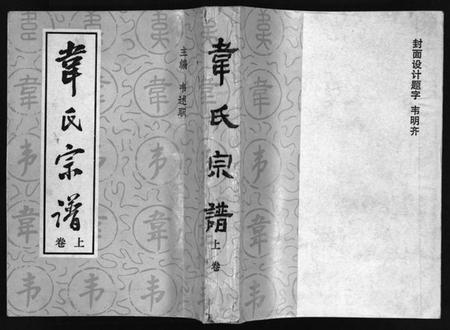 韋氏宗譜
上卷
主编 韦述职
韋氏宗譜
上卷
封面设计题字 韦明齐
韋
韦